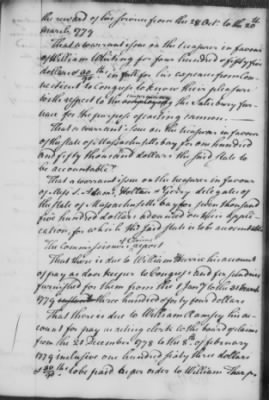 the reward of his services from the 28 Oct. to the 20th
March 1779
That a warrant issue on the treasurer in favour
of William Whiting for four hundred & fifty five
dollars & 30/90ths in full for his expences from Con-
necticut to Congress to know their pleasure
with respect to the employing the Salisbury fur-
nace for the purpose of casting cannon.
That a warrant issue on the treasurer in favour
of the state of Massachusetts bay for one hundred
and fifty thousand dollars the said state to
be accountable
That a warrant issue on the treasurer in favour
of Messrs S. Adams, Holten & Gerry delegates of
the state of Massachusetts bay for seven thousand
five hundred dollars advanced on their applic-
ation, for which the said state is to be accountable
The Commissioners of Claims report
That there is due to William Hurrie his account
of pay as door keeper to Congress and for sundries
furnished for them from the 1 Jany to the 31 day
1779 three hundred & forty four dollars
That there is due to William Ramsey his ac-
count for pay acting clerk to the board of claims
from the 21 December 1778 to the 8th of february
1779 inclusive one hundred & sixty three dollars
& 30/90ths to be paid as per order to William Thorp.